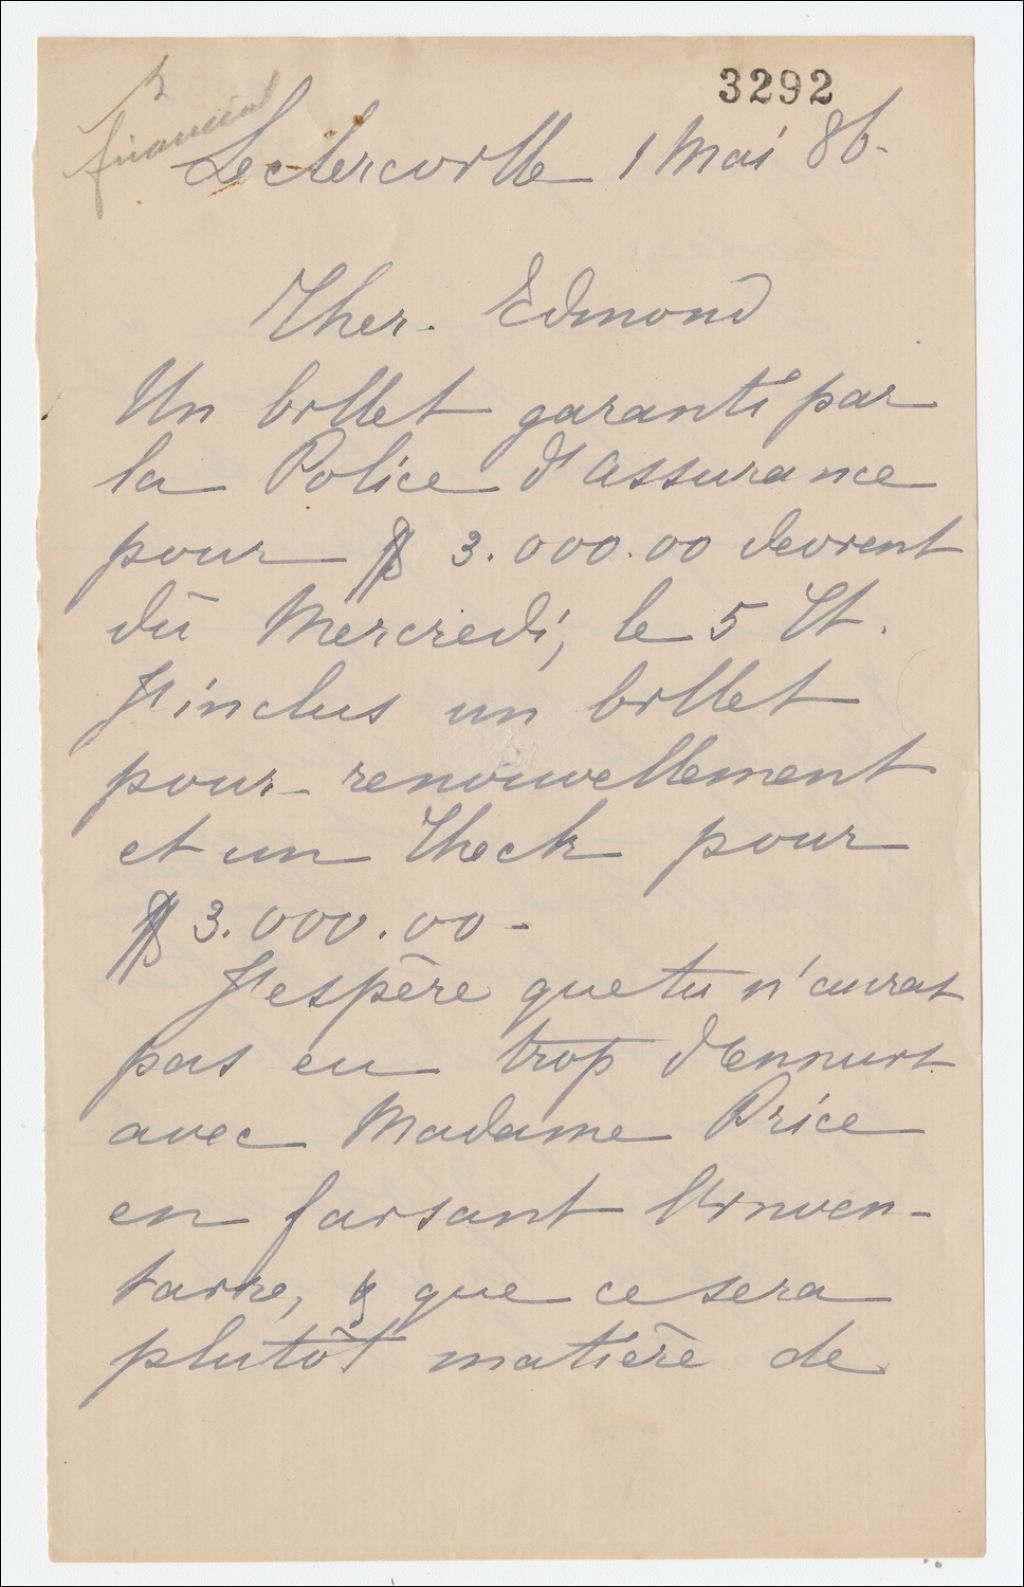 3292
financial
Leclercville 1 Mai 86.
Cher. Edmond
Un billet garanti par
la Police d'assurance
pour $ 3.000.00 devient
dû Mercredi, le 5 Ct.
J'inclus un billet
pour renouvellement
et un Check pour
$ 3.000.00-
J'espère que tu n'aurat
pas eu trop d'Ennuit
avec Madame Price
en faisant l'inven-
taire, & que ce sera
plutôt matière de